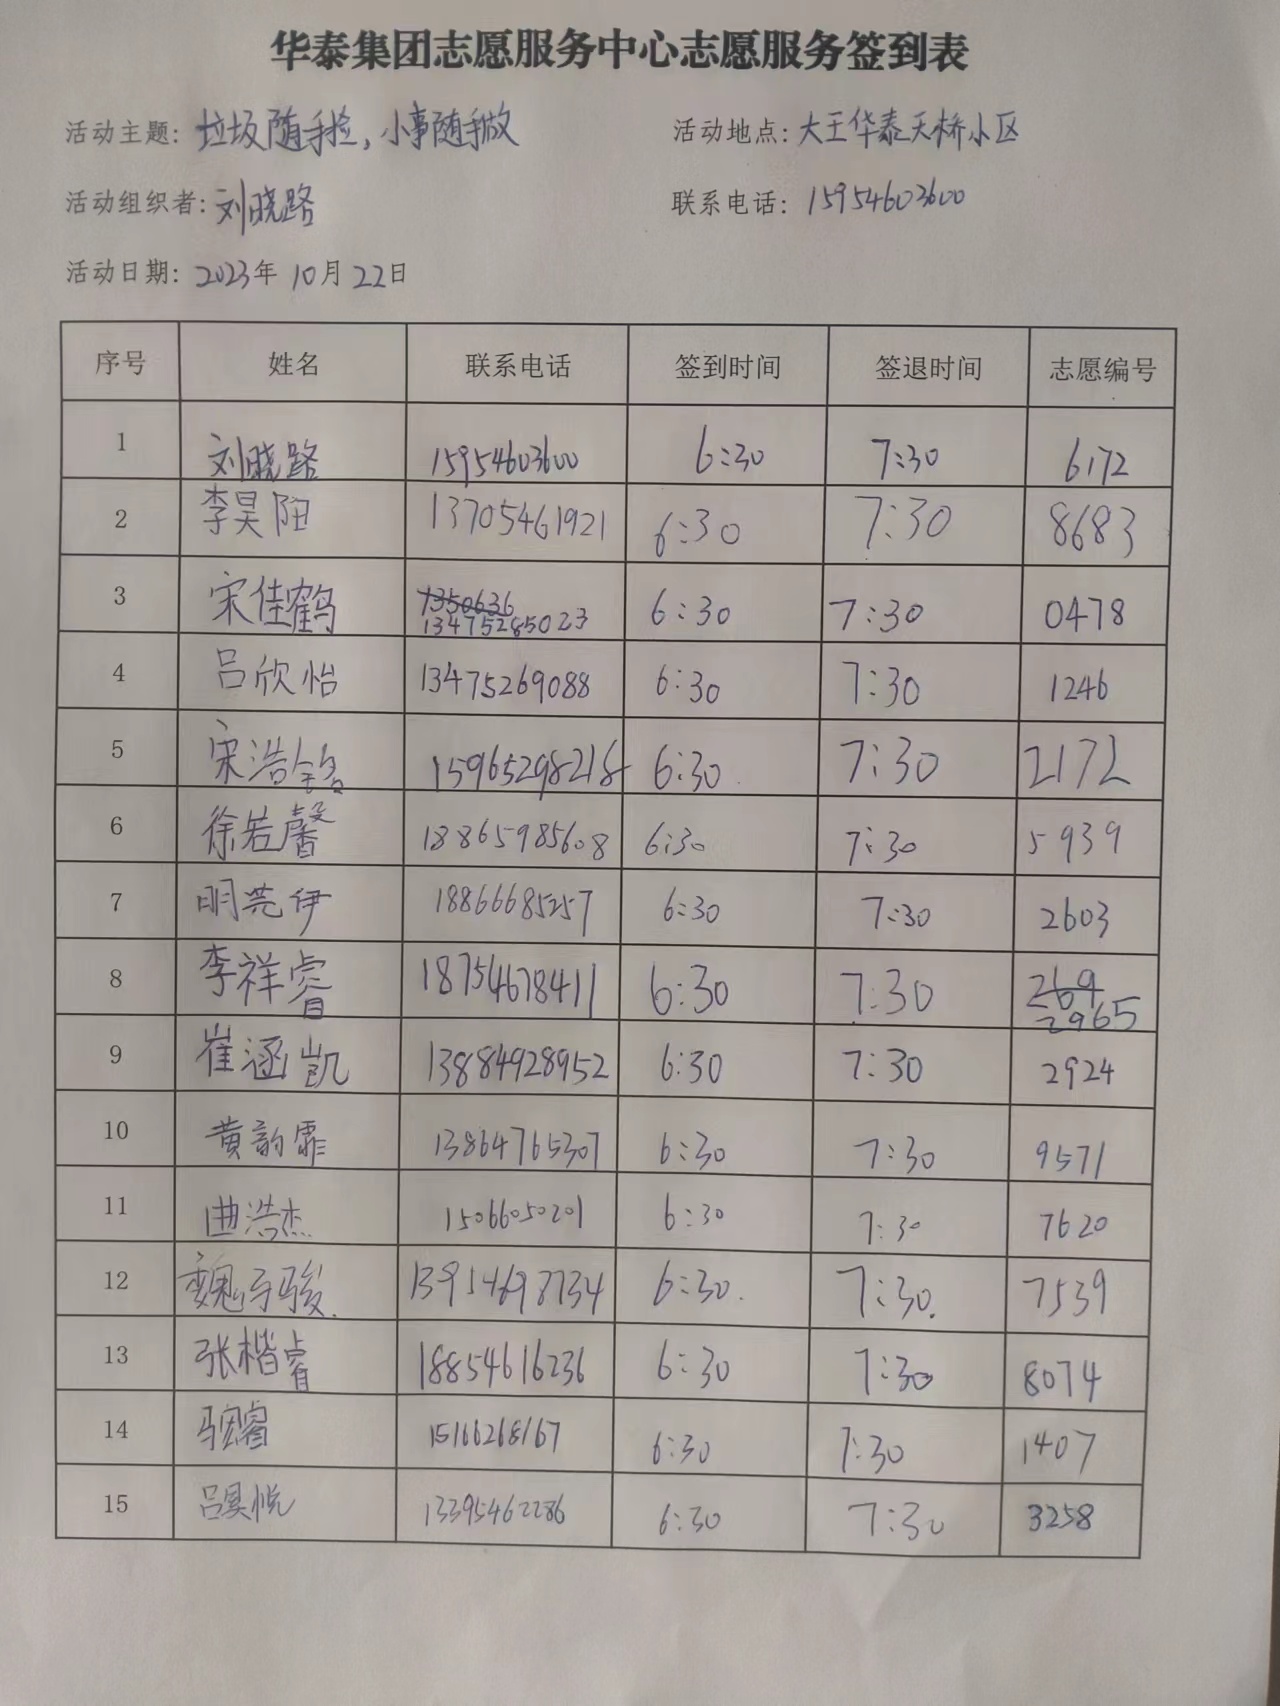 华泰集团志愿服务中心志愿服务签到表
活动主题：垃圾随手捡，小事随手做 活动地点：大王华泰天桥小区
活动组织者：刘晓路 联系电话：15954603600
活动日期：2023年10月22日
序号 姓名 联系电话 签到时间 签退时间 志愿编号
1 刘晓路 15954603600 6:30 7:30 6172
2 李昊阳 13705461921 6:30 7:30 8683
3 宋佳鹤 1350636 13475285023 6:30 7:30 0478
4 吕欣怡 13475269088 6:30 7:30 1246
5 宋浩铭 15965298218 6:30 7:30 2172
6 徐若馨 18865985608 6:30 7:30 5939
7 明芫伊 18866685257 6:30 7:30 2603
8 李祥睿 18754678411 6:30 7:30 269 2965
9 崔涵凯 13884928952 6:30 7:30 2924
10 黄韵霏 13864765307 6:30 7:30 9571
11 曲浩杰 15066050201 6:30 7:30 7620
12 魏子骏 13954698734 6:30 7:30 7539
13 张楷睿 18854616236 6:30 7:30 8074
14 15166268167 6:30 7:30 1407
15 吕昊悦 13395462286 6:30 7:30 3258